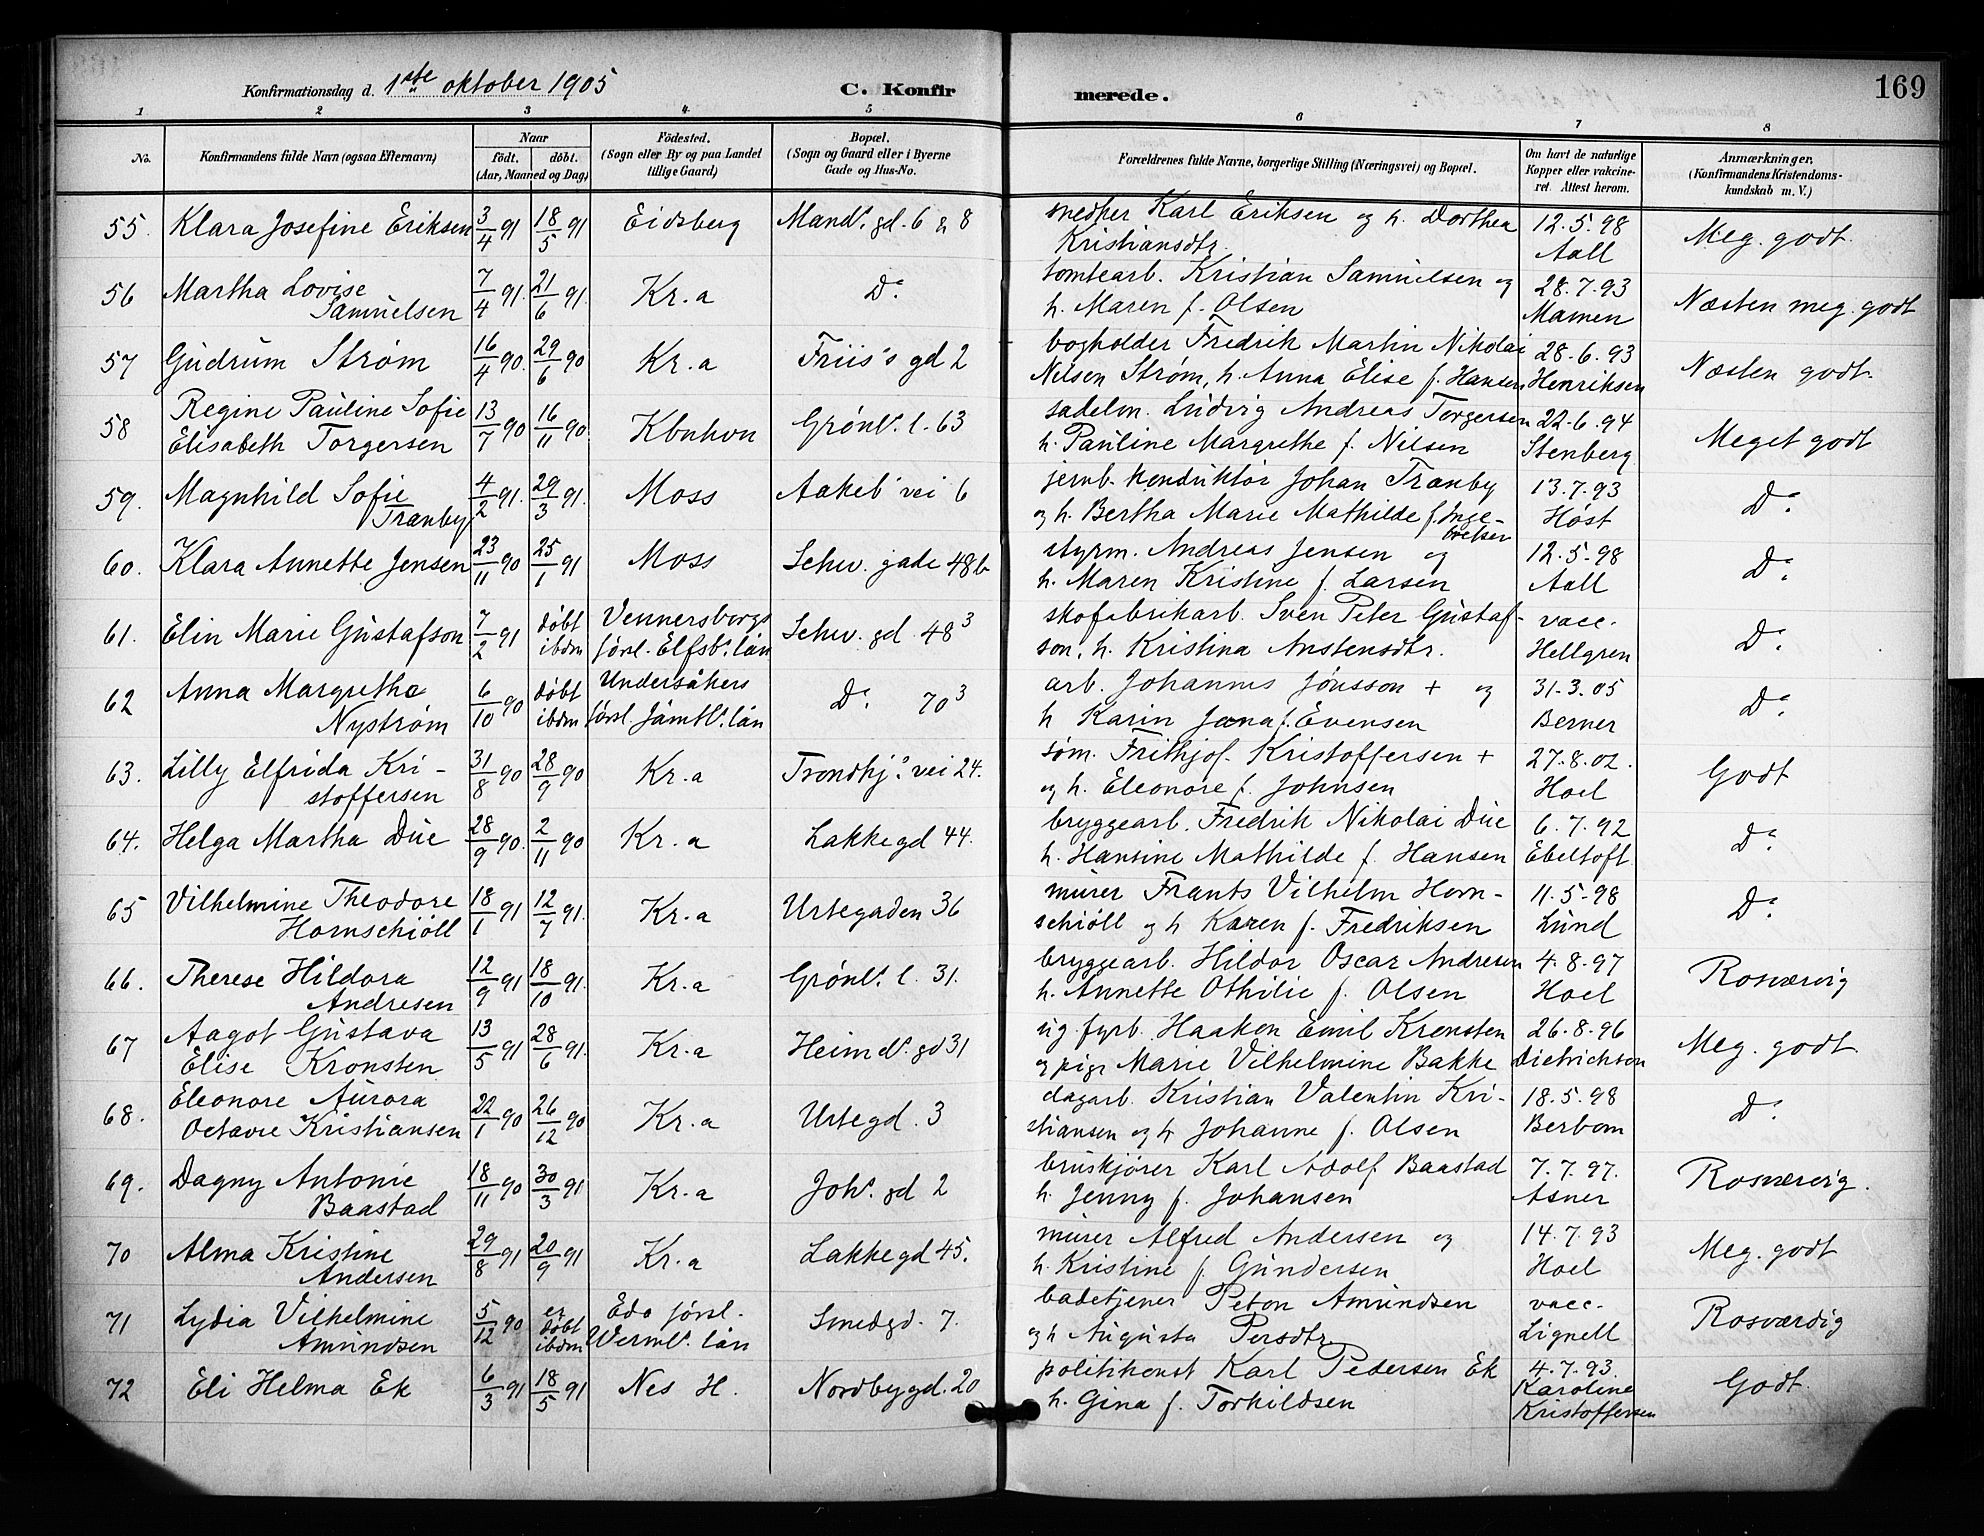 169
Konfirmationsdag d. 1ste oktober 1905 C. Konfirmerede.
1 2 3 4 5 6 7 8
No. Konfirmandens fulde Navn (ogsaa Efternavn) Naar født. døbt. (Aar, Maaned og Dag) Fødested. (Sogn eller By og paa Landet tillige Gaard) Bopæl. (Sogn og Gaard eller i Byerne Gade og Hus-No. Forældrenes fulde Navne, borgerlige Stilling (Næringsvei) og Bopæl. Om havt de naturlige Kopper eller vakcineret. Attest herom. Anmærkninger. (Konfirmandens Kristendomskundskab m. V.)
55. Klara Josefine Eriksen 3/4 91 18/5 91 Eidsberg Mands. gd. 6 & 8 snedker Karl Eriksen og h. Dorthea 12.5.98 Meg. godt.
Kristiansdtr. Aall
56 Martha Lovise 7/4 91. 21/6 91. Kr.a Do. tomtearb. Kristian Samuelsen og 28.7.93 Næsten meg. godt
Samuelsen h. Maren f. Olsen Mamen
57 Gudrum Strøm 16/4 90. 29/6 90 Kr.a Friis's gd 2 bogholder Fredrik Martin Nikolai 28.6.93 Næsten godt.
Nilsen Strøm, h. Anna Elise f. Hansen Henriksen
58 Regine Pauline Sofie 13/7 90 16/11 90. Kbnhvn Grønl. l. 63 sadelm. Ludvig Andreas Torgersen 22.6.94 Meget godt
Elisabeth Torgersen h. Pauline Margrethe f. Nilsen Stenberg
59. Magnhild Sofie 4/2 91. 29/3 91. Moss Aakeb. vei 6 jernb. konduktør Johan Tranby 13.7.93 Do.
Tranby og h. Bertha Marie Mathilde f. Ingebretsen Høst
60. Klara Annette Jensen 23/11 90 25/1 91 Moss Schw. gade 48b styrm. Andreas Jensen og 12.5.98 Do.
h. Maren Kristine f. Larsen Aall
61. Elin Marie Gustafson 7/2 91 døbt ibdm Vennersborgs förs. Elfsb. län Schw. gd. 48³ skofabrikarb. Sven Peter Gustaf- vacc. Do.
son, h. Kristina Anstensdtr. Hellgren
62 Anna Margrethe 6/10 90 døbt ibdm Undersåkers förs. Jämtl. län Do. 70³ arb. Johannes Jönsson + og 31.3.05 Do.
Nystrøm h Karin Jona f. Evensen Berner
63. Lilly Elfrida Kri- 31/8 90 28/9 90 Kr.a Trondhj. vei 24. søm. Frithjof. Kristoffersen + 27.8.02. Godt
stoffersen og h. Eleonore f. Johnsen Hoel
64. Helga Martha Due 28/9 90. 2/11 90 Kr.a Lakkegd 44. bryggearb. Fredrik Nikolai Due 6.7.92 Do.
h. Hansine Mathilde f. Hansen Ebeltoft
65 Vilhelmine Theodore 18/1 91 12/7 91. Kr.a Urtegaden 36 murer Frants Vilhelm Horn- 11.5.98 Do.
Hornschiöll schiöll og h Karen f. Fredriksen Lund
66. Therese Hildora 12/9 91 18/10 91. Kr.a Grønl. l. 31. bryggearb. Hildor Oscar Andresen 4.8.97 Rosværdig
Andresen h. Annette Othilie f. Olsen Hoel
67 Aagot Gustava 13/5 91 28/6 91. Kr.a Heimd. gd 31 ug. fyrb. Haakon Emil Kronsten 26.8.96 Meg. godt.
Elise Kronsten og pige Marie Vilhelmine Bakke Dietrichson
68. Eleonore Aurora 22/1 90 26/12 90 Kr.a Urtegd. 3 dagarb. Kristian Valentin Kri- 18.5.98 Do.
Octavie Kristiansen stiansen og h Johanne f. Olsen Berbom
69. Dagny Antonie 18/11 90 30/3 91 Kr.a Joh. gd 2 bruskjører Karl Adolf Baastad 7.7.97. Rosværdig.
Baastad h. Jenny f. Johansen Asner
70 Alma Kristine 29/8 91 20/9 91 Kr.a Lakkegd 45. murer Alfred Andersen og 14.7.93 Meg. godt
Andersen h. Kristine f. Gundersen Hoel
71 Lydia Vilhelmine 5/12 90 er døbt ibdm Eda förs. Werml. län Smedgd. 7. badetjener Petter Amundsen vacc. Rosværdig
Amundsen og h Augusta Persdtr. Lignell
72 Eli Helma Ek 6/3 91 18/5 91 Nes H. Nordbygd. 20 politikonst Karl Pedersen Ek 4.7.93. Godt.
h. Gina f. Torkildsen Karoline Kristoffersen